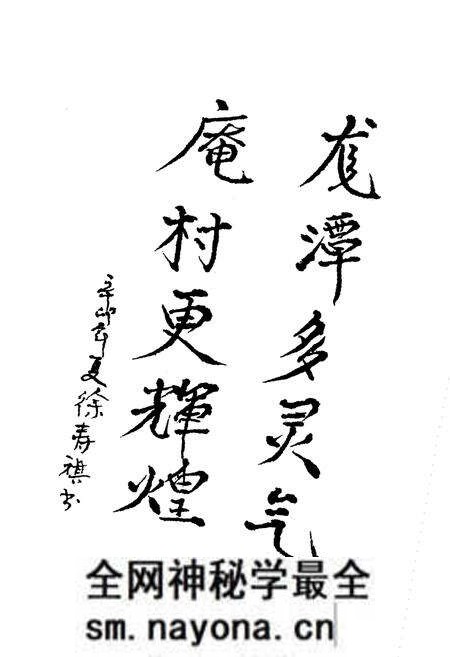 龙潭多灵气
庵村更輝煌
辛卯夏徐寿祺书
全网神秘学最全
sm.nayona.cn